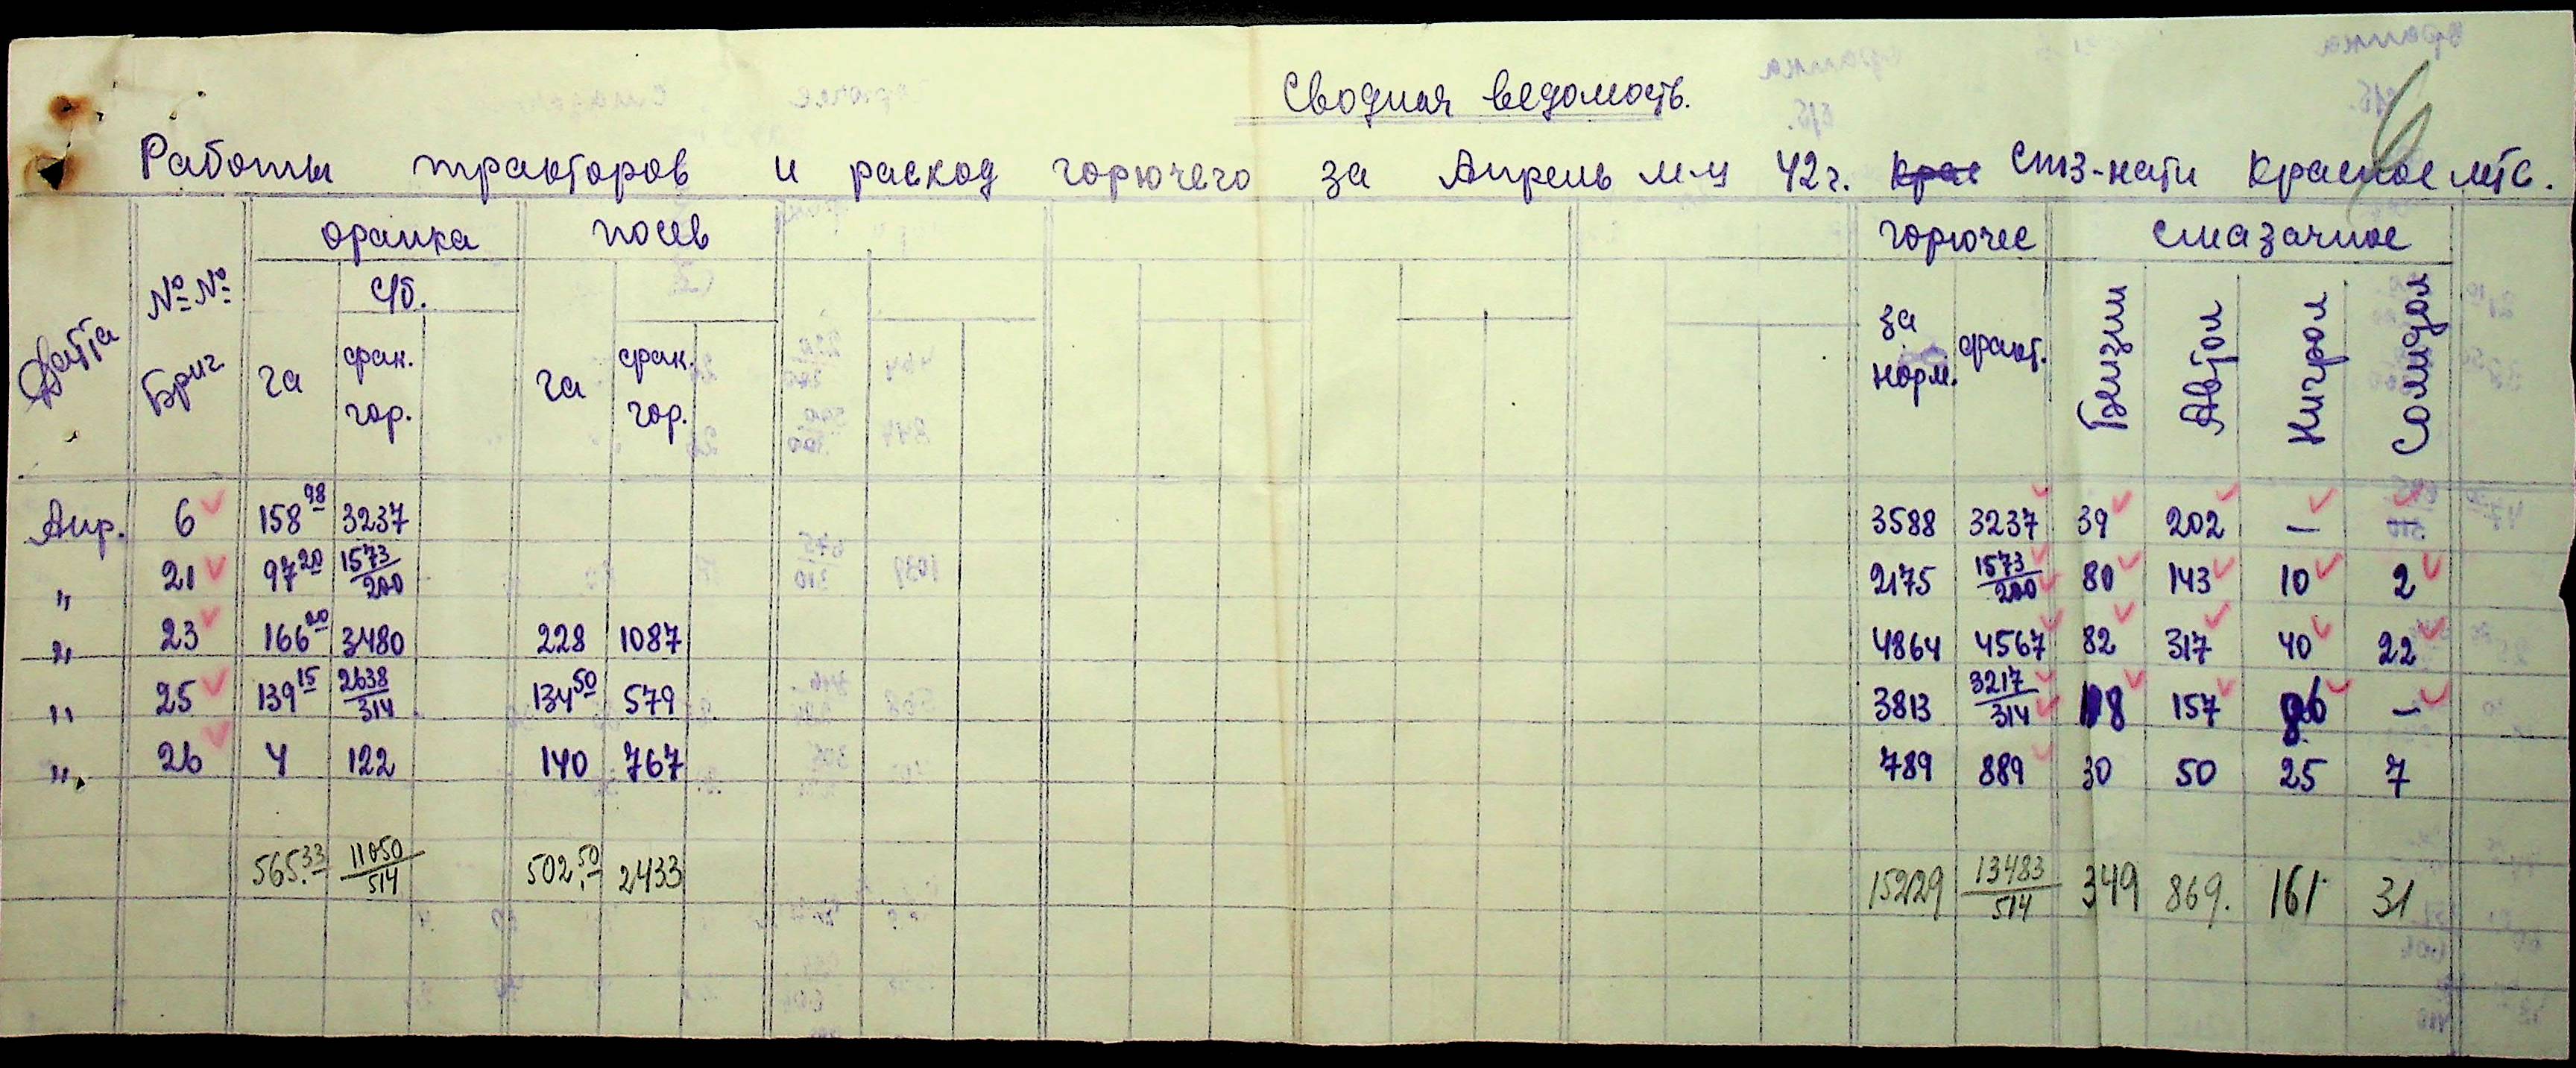 Сводная ведомость.
Работы тракторов и расход горючего за Апрель м-ц 42 г. СТЗ-нати Красное мтс.
Датта №№ Бриг. оранка посев горючее смазачное
га с/б. фак. гор. га фак. гор. за норм. факт. Бензин Автол Нигрол Солидол
Апр. 6 158 98 3237 3588 3237 39 202 — —
" 21 97 20 1573/200 2175 1573/200 80 143 10 2
" 23 166 00 3480 228 1087 4864 4567 82 317 40 22
" 25 139 15 2638/314 134 50 579 3813 3217/314 118 157 86 —
" 26 4 122 140 767 789 889 30 50 25 7
565.33 11050/514 502.50 2433 15229 13483/514 349 869. 161 31
6